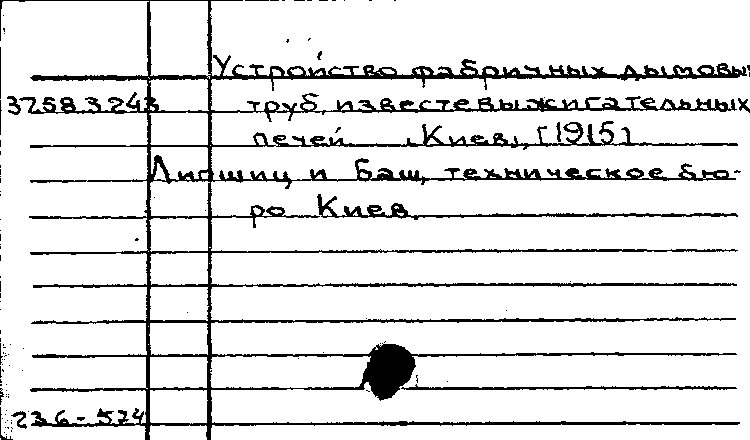 Устройство фабричных дымовых
3258.3.243 труб, известевыжигательных
печей. Киев, [1915]
Липшиц и Баш, техническое бю-
ро Киев.
236-574